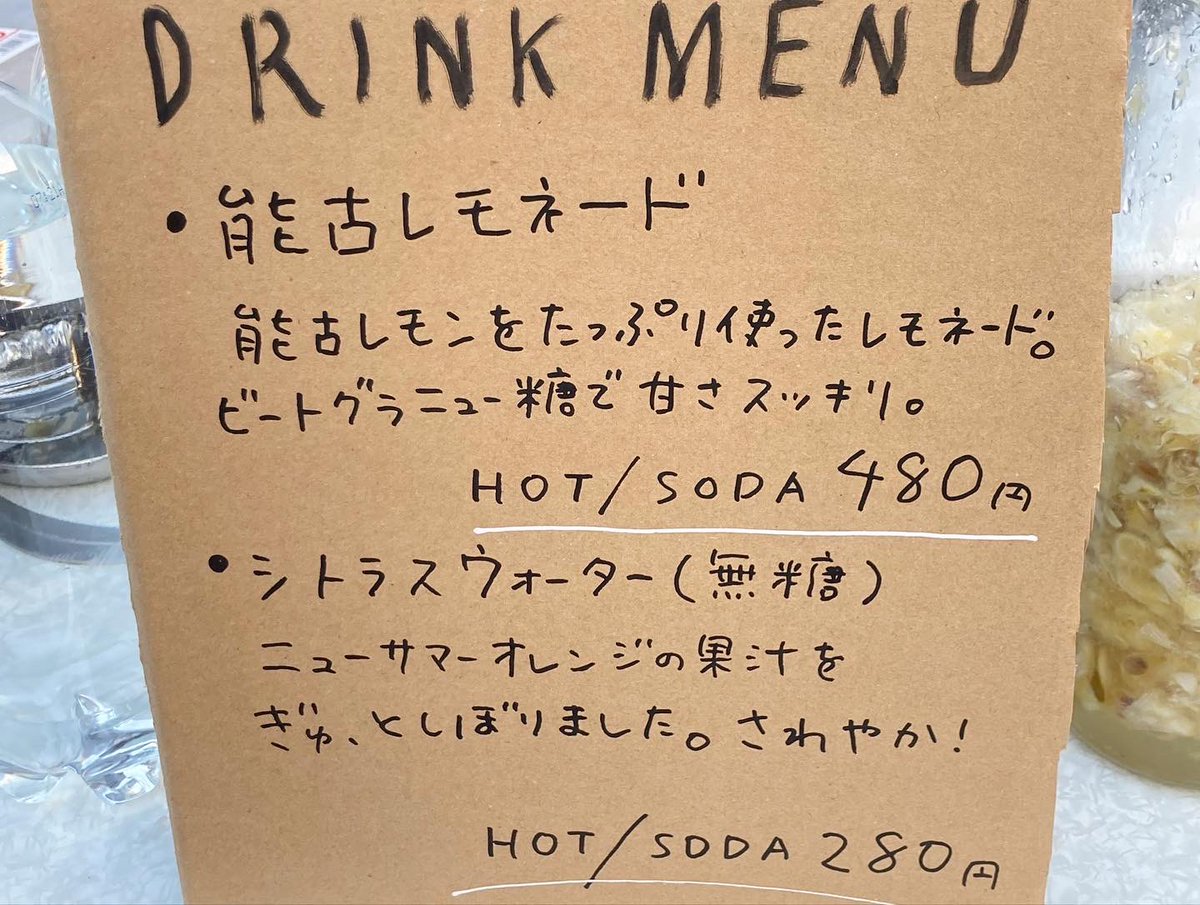 DRINK MENU
・能古レモネード
能古レモンをたっぷり使ったレモネード。
ビートグラニュー糖で甘さスッキリ。
HOT/SODA 480円
・シトラスウォーター(無糖)
ニューサマーオレンジの果汁を
ぎゅ、としぼりました。さわやか!
HOT/SODA 280円